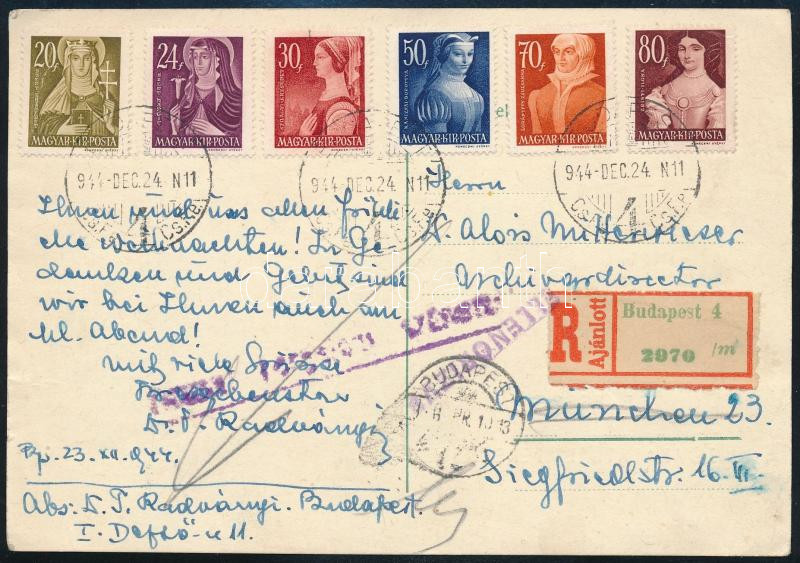 20f
24f
30f
50f
70f
80f
MAGYAR·KIR·POSTA
MAGYAR·KIR·POSTA
MAGYAR·KIR·POSTA
MAGYAR·KIR·POSTA
MAGYAR·KIR·POSTA
MAGYAR·KIR·POSTA
944-DEC.24. N11
944-DEC.24. N11
944-DEC.24. N11
4
CSEP.
Ihnen und uns allen fröhli-
che Weihnachten! In Ge-
danken und Gebet sind
wir bei Ihnen auch am
hl. Abend!
mit viele Grüsse
Dr. T. Radványi
Bp. 23. XII. 944.
Abs: D. T. Radványi. Budapest.
I. Dezső-u 11.
Herrn
D. Alois Mitterwieser
Archivdirector
R
Ajánlott
Budapest 4
2970 /m
München 23.
Siegfriedstr. 16 III.
BUDAPEST